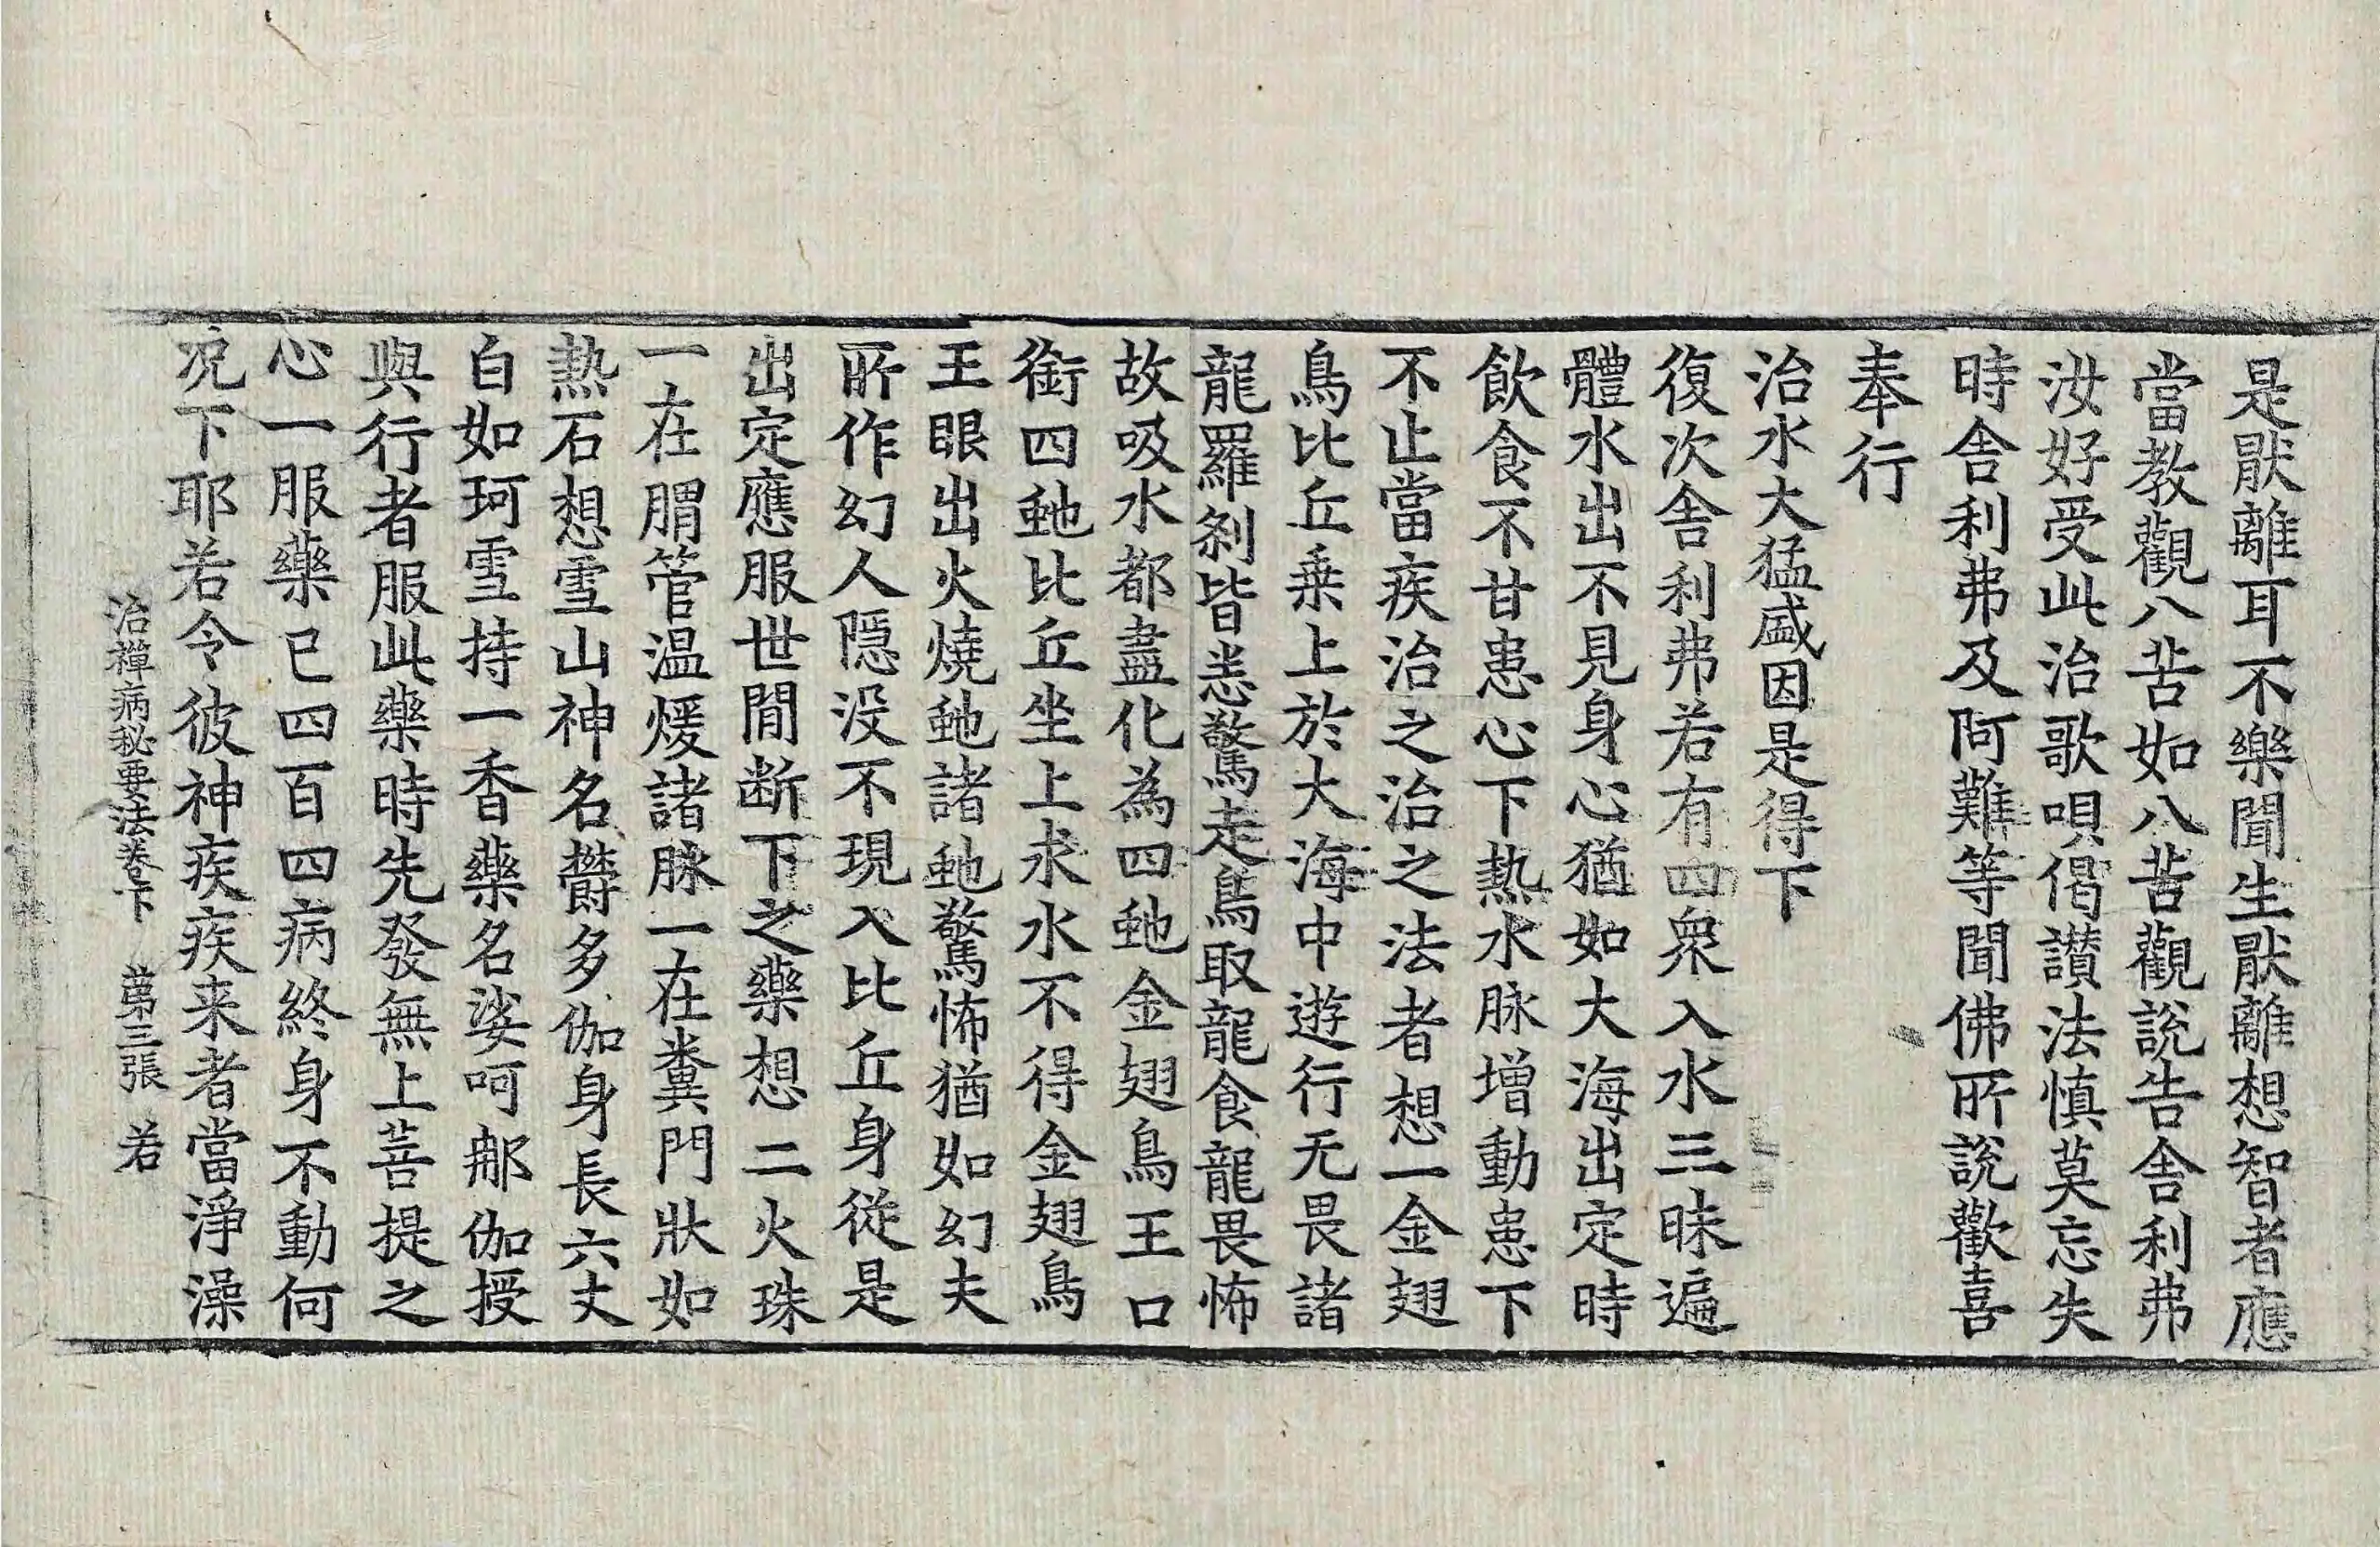 是厭離耳不樂聞生厭離想智者應
當教觀八苦如八苦觀說告舍利弗
汝好受此治歌唄偈讃法慎莫忘失
時舍利弗及阿難等聞佛所說歡喜
奉行
治水大猛盛因是得下
復次舍利弗若有四衆入水三昧遍
體水出不見身心猶如大海出定時
飲食不甘患心下熱水脉增動患下
不止當疾治之治之法者想一金翅
鳥比丘乗上於大海中遊行无畏諸
龍羅剎皆悉驚走鳥取龍食龍畏怖
故吸水都盡化為四虵金翅鳥王口
銜四虵比丘坐上求水不得金翅鳥
王眼出火燒虵諸虵驚怖猶如幻夫
所作幻人隱没不現入比丘身從是
出定應服世間断下之藥想二火珠
一在胃管温煖諸脉一在糞門狀如
熱石想雪山神名欝多伽身長六丈
白如珂雪持一香藥名娑呵那伽授
與行者服此藥時先發無上菩提之
心一服藥已四百四病終身不動何
况下耶若令彼神疾疾来者當淨澡
治禪病秘要法卷下 苐三張 若